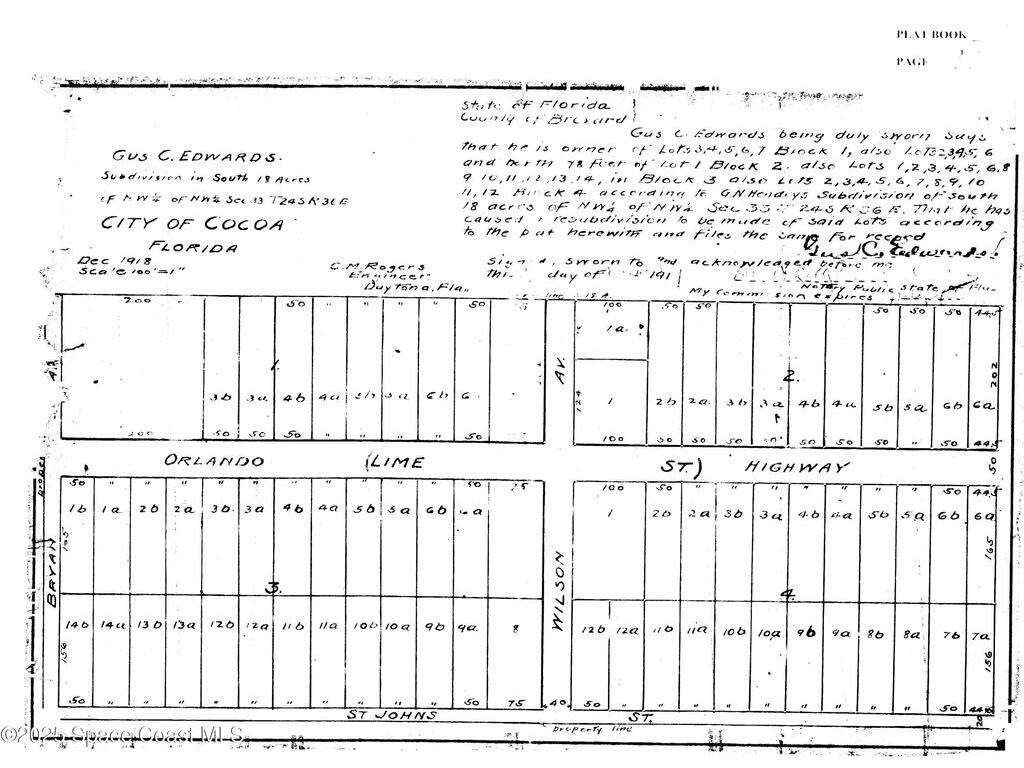 PLAT BOOK
PAGE
GUS C. EDWARDS.
Subdivision in South 18 Acres
of NW¼ of NW¼ Sec 33 T24S R36E
CITY OF COCOA
FLORIDA
Dec 1918
Scale 100'=1"
C.M. Rogers
Engineer
Daytona, Fla.
State of Florida
County of Brevard
Gus C. Edwards being duly sworn says
that he is owner of Lots 3,4,5,6,7 Block 1, also Lots 2,3,4,5,6
and north 78 feet of Lot 1 Block 2. also Lots 1,2,3,4,5,6,8
9 10,11,12,13,14, in Block 3 also Lots 2,3,4,5,6,7,8,9,10
11,12 Block 4 according to G.N. Hendrys Subdivision of South
18 acres of NW¼ of NW¼ Sec 33 T 24S R 36 E. That he has
caused a resubdivision to be made of said Lots according
to the plat herewith and files the same for record
Gus C. Edwards
Sworn to and acknowledged before me
this day of 191
Notary Public State of Fla.
My Commission expires
200 50 " " " " 50
line
100 50 50 50 50 50 44.5
1a.
1.
AV.
2.
202
124
3b 3a 4b 4a 5b 5a 6b 6
1 2b 2a 3b 3a 4b 4a 5b 5a 6b 6a
200 50 50 50 " " " " 50
100 50 50 50 50 50 50 50 " 50 44.5
ORLANDO (LIME ST.) HIGHWAY
50
50 " " " " " " " " " " 50 75
100 50 " " " " " " " 50 44.5
1b 1a 2b 2a 3b 3a 4b 4a 5b 5a 6b 6a
1 2b 2a 3b 3a 4b 4a 5b 5a 6b 6a
165
165
BRYAN
WILSON
3.
4.
14b 14a 13b 13a 12b 12a 11b 11a 10b 10a 9b 9a 8
12b 12a 11b 11a 10b 10a 9b 9a 8b 8a 7b 7a
156
156
50 " " " " " " " " " " 50 75
40
50 " " " " " " " " " 50 44.5
ST JOHNS ST.
20
property line
©2025 Space Coast MLS